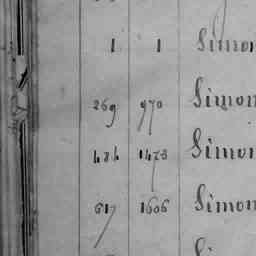 1 1 Simon
269 970 Simon
484 1473 Simon
617 1606 Simon